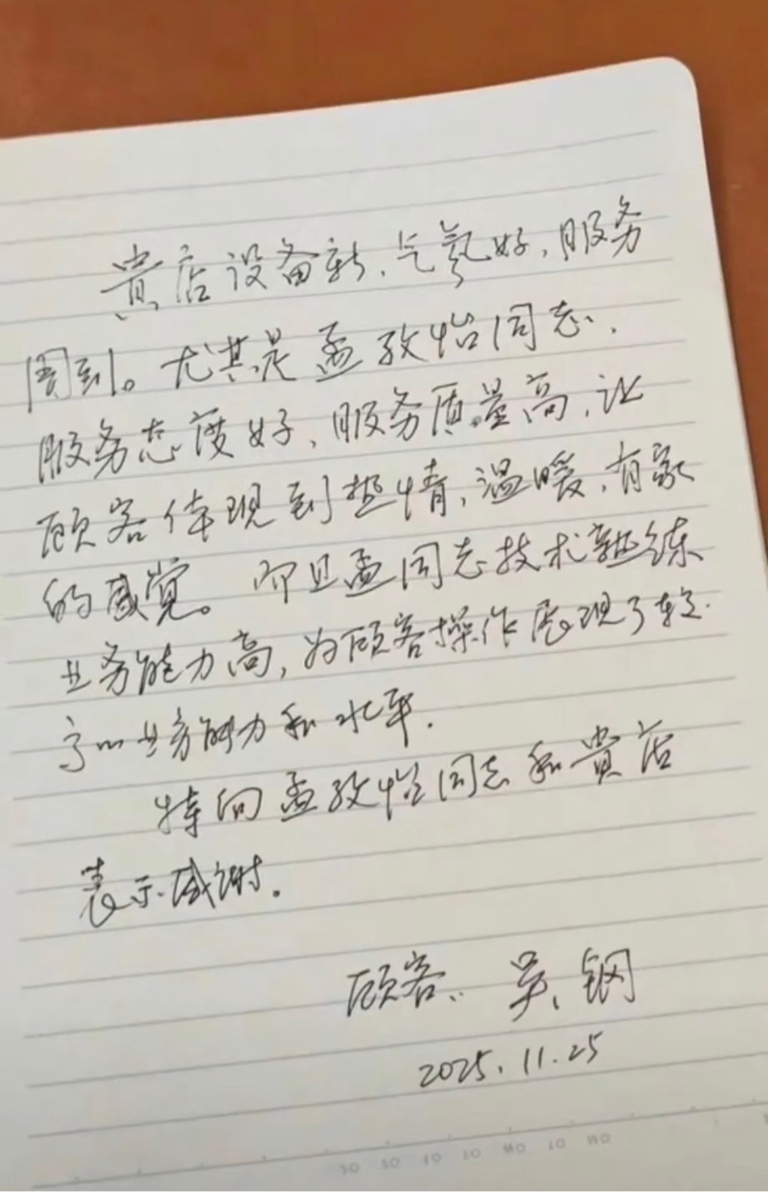 贵店设备新,气氛好,服务
周到。尤其是孟孜怡同志,
服务态度好,服务质量高,让
顾客体现到热情,温暖,有家
的感觉。而且孟同志技术熟练
业务能力高,为顾客操作展现了较
高的业务能力和水平.
特向孟孜怡同志和贵店
表示感谢。
顾客: 吴钢
2025.11.25